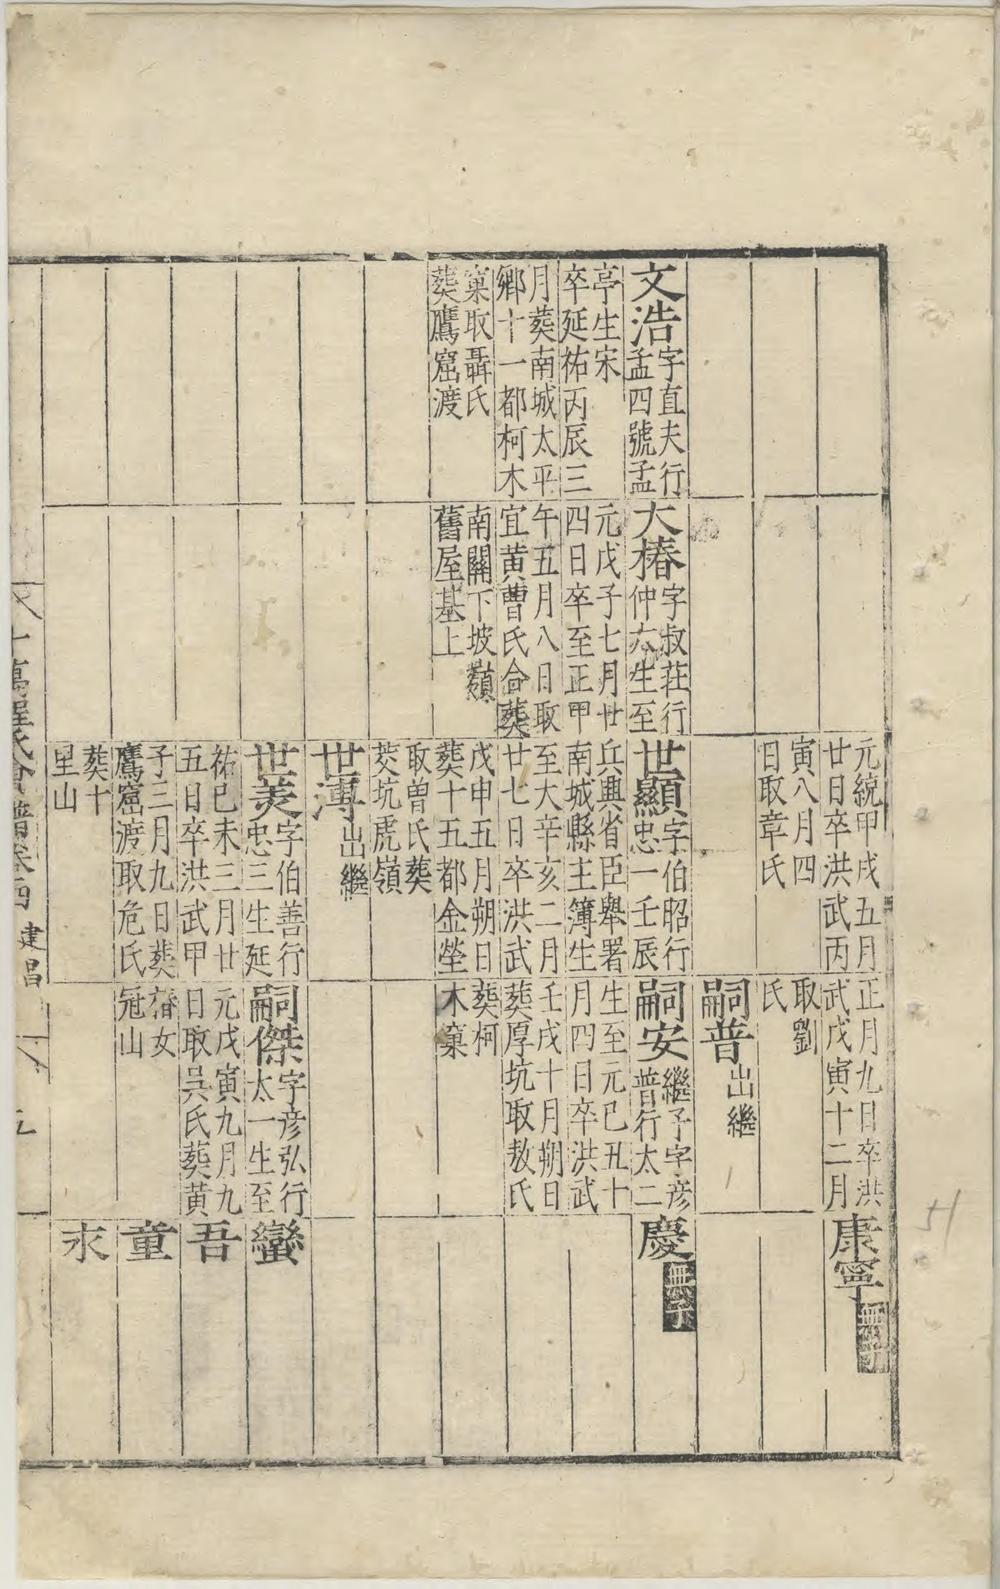 文浩字直夫行
孟四號孟
亭生宋
卒延祐丙辰三
月葬南城太平
鄉十一都柯木
窠取聶氏
葬鷹窟渡
大椿字叔荘行
仲六生至
元戊子七月廿
四日卒至正甲
午五月八日取
宜黄曹氏合葬
南關下坡嶺
舊屋基上
元統甲戌五月
廿日卒洪武丙
寅八月四
日取章氏
世顯字伯昭行
忠一壬辰
兵興省臣舉署
南城縣主簿生
至大辛亥二月
廿七日卒洪武
戊申五月朔日
葬十五都金塋
取曽氏葬
茭坑虎嶺
世溥出繼
世美字伯善行
忠三生延
祐己未三月廿
五日卒洪武甲
子三月九日葬
鷹窟渡取危氏
葬十
里山
正月九日卒洪
武戊寅十二月
取劉
氏
嗣普出繼
嗣安繼子字彦
普行太二
生至元己丑十
月四日卒洪武
壬戌十月朔日
葬厚坑取敖氏
葬柯
木窠
嗣傑字彦弘行
太一生至
元戊寅九月九
日取吳氏葬黄
椿女
冠山
康寧無子
慶無子
蠻
吾
童
求
十萬程氏會譜卷四 建昌